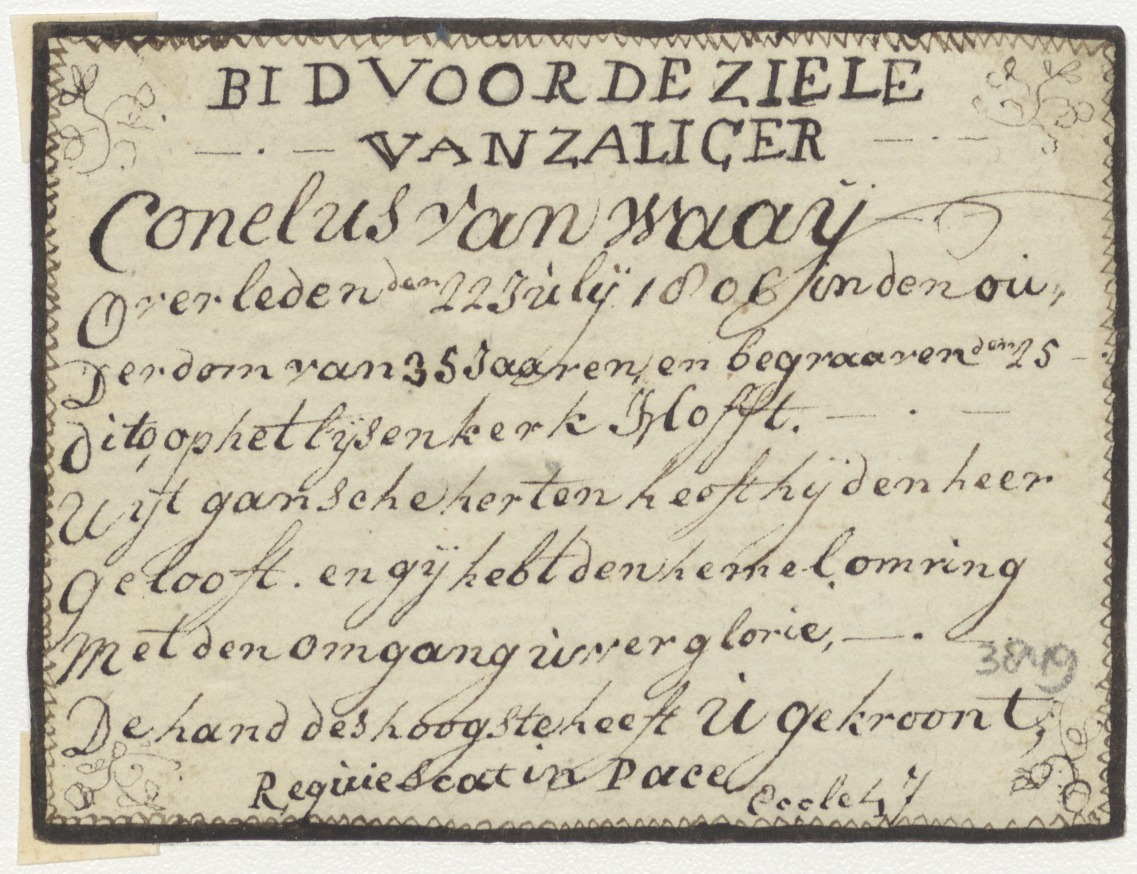 BID VOOR DE ZIELE
VAN ZALIGER
Conelus van Waaÿ
Overleden den 22 Julÿ 1806 in den ou,,
Derdom van 35 Jaaren, en begraaven den 25
dito, op het Eÿsenkerk Hofft.
Uÿt gansche herten heeft hÿ den heer
Gelooft. en gÿ hebt den hemel, omring
Met den omgang uwer glorie,
3849
De hand des hoogste heeft U gekroont,
Requiescat in Pace
Eccle 47